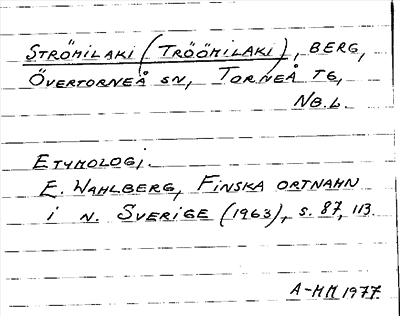 STRÖMILAKI (TRÖÖMILAKI), BERG,
ÖVERTORNEÅ SN, TORNEÅ TG,
NB.L.
ETYMOLOGI.
E. WAHLBERG, FINSKA ORTNAMN
i N. SVERIGE (1963), s. 87, 113.
A-MM 1977.